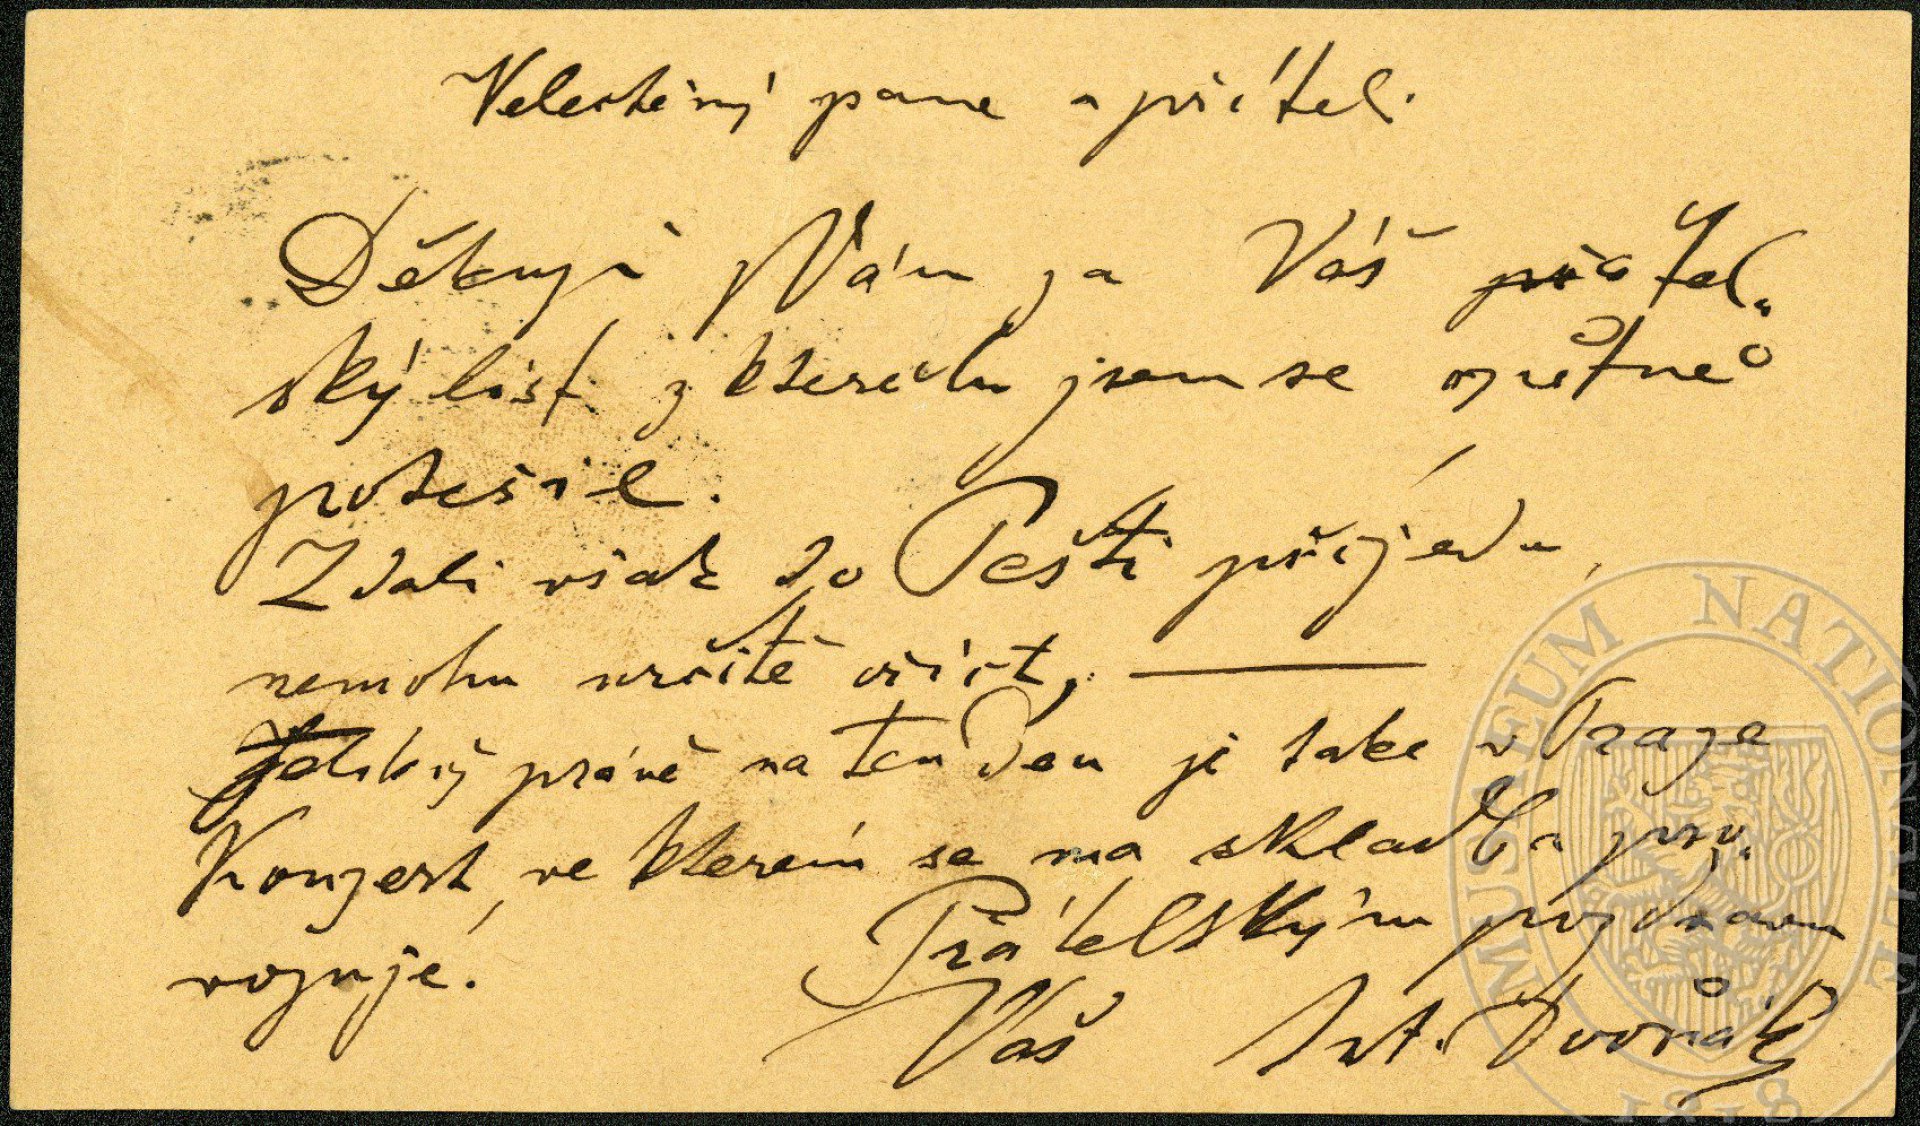 Velectěný pane a příteli
Děkuji Vám za Váš přátel„
ský list z kterého jsem se opětně
potěšil.
Zdali však do Pešti přijedu,
nemohu určitě říct, —
právě na ten den je take v Praze
Konzert, ve kterém se má skladba pro„
vozuje.
Přátelským pozdravem
Váš Ant. Dvořák
MUSEUM NATIONALE
1818